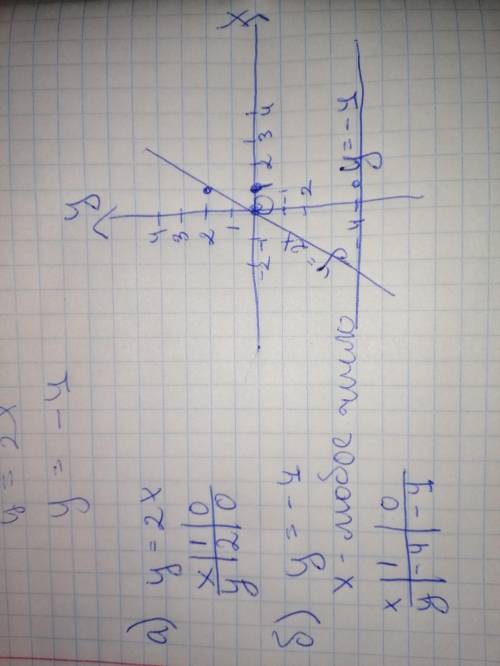 y = 2x
y = -4
а) y = 2x
x | 1 | 0
y | 2 | 0
б) y = -4
x - любое число
x | 1 | 0
y | -4 | -4
y
x
4
3
2
1
-2 -1 0 1 2 3 4
-1
-2
-4
y = -4
y = 2x